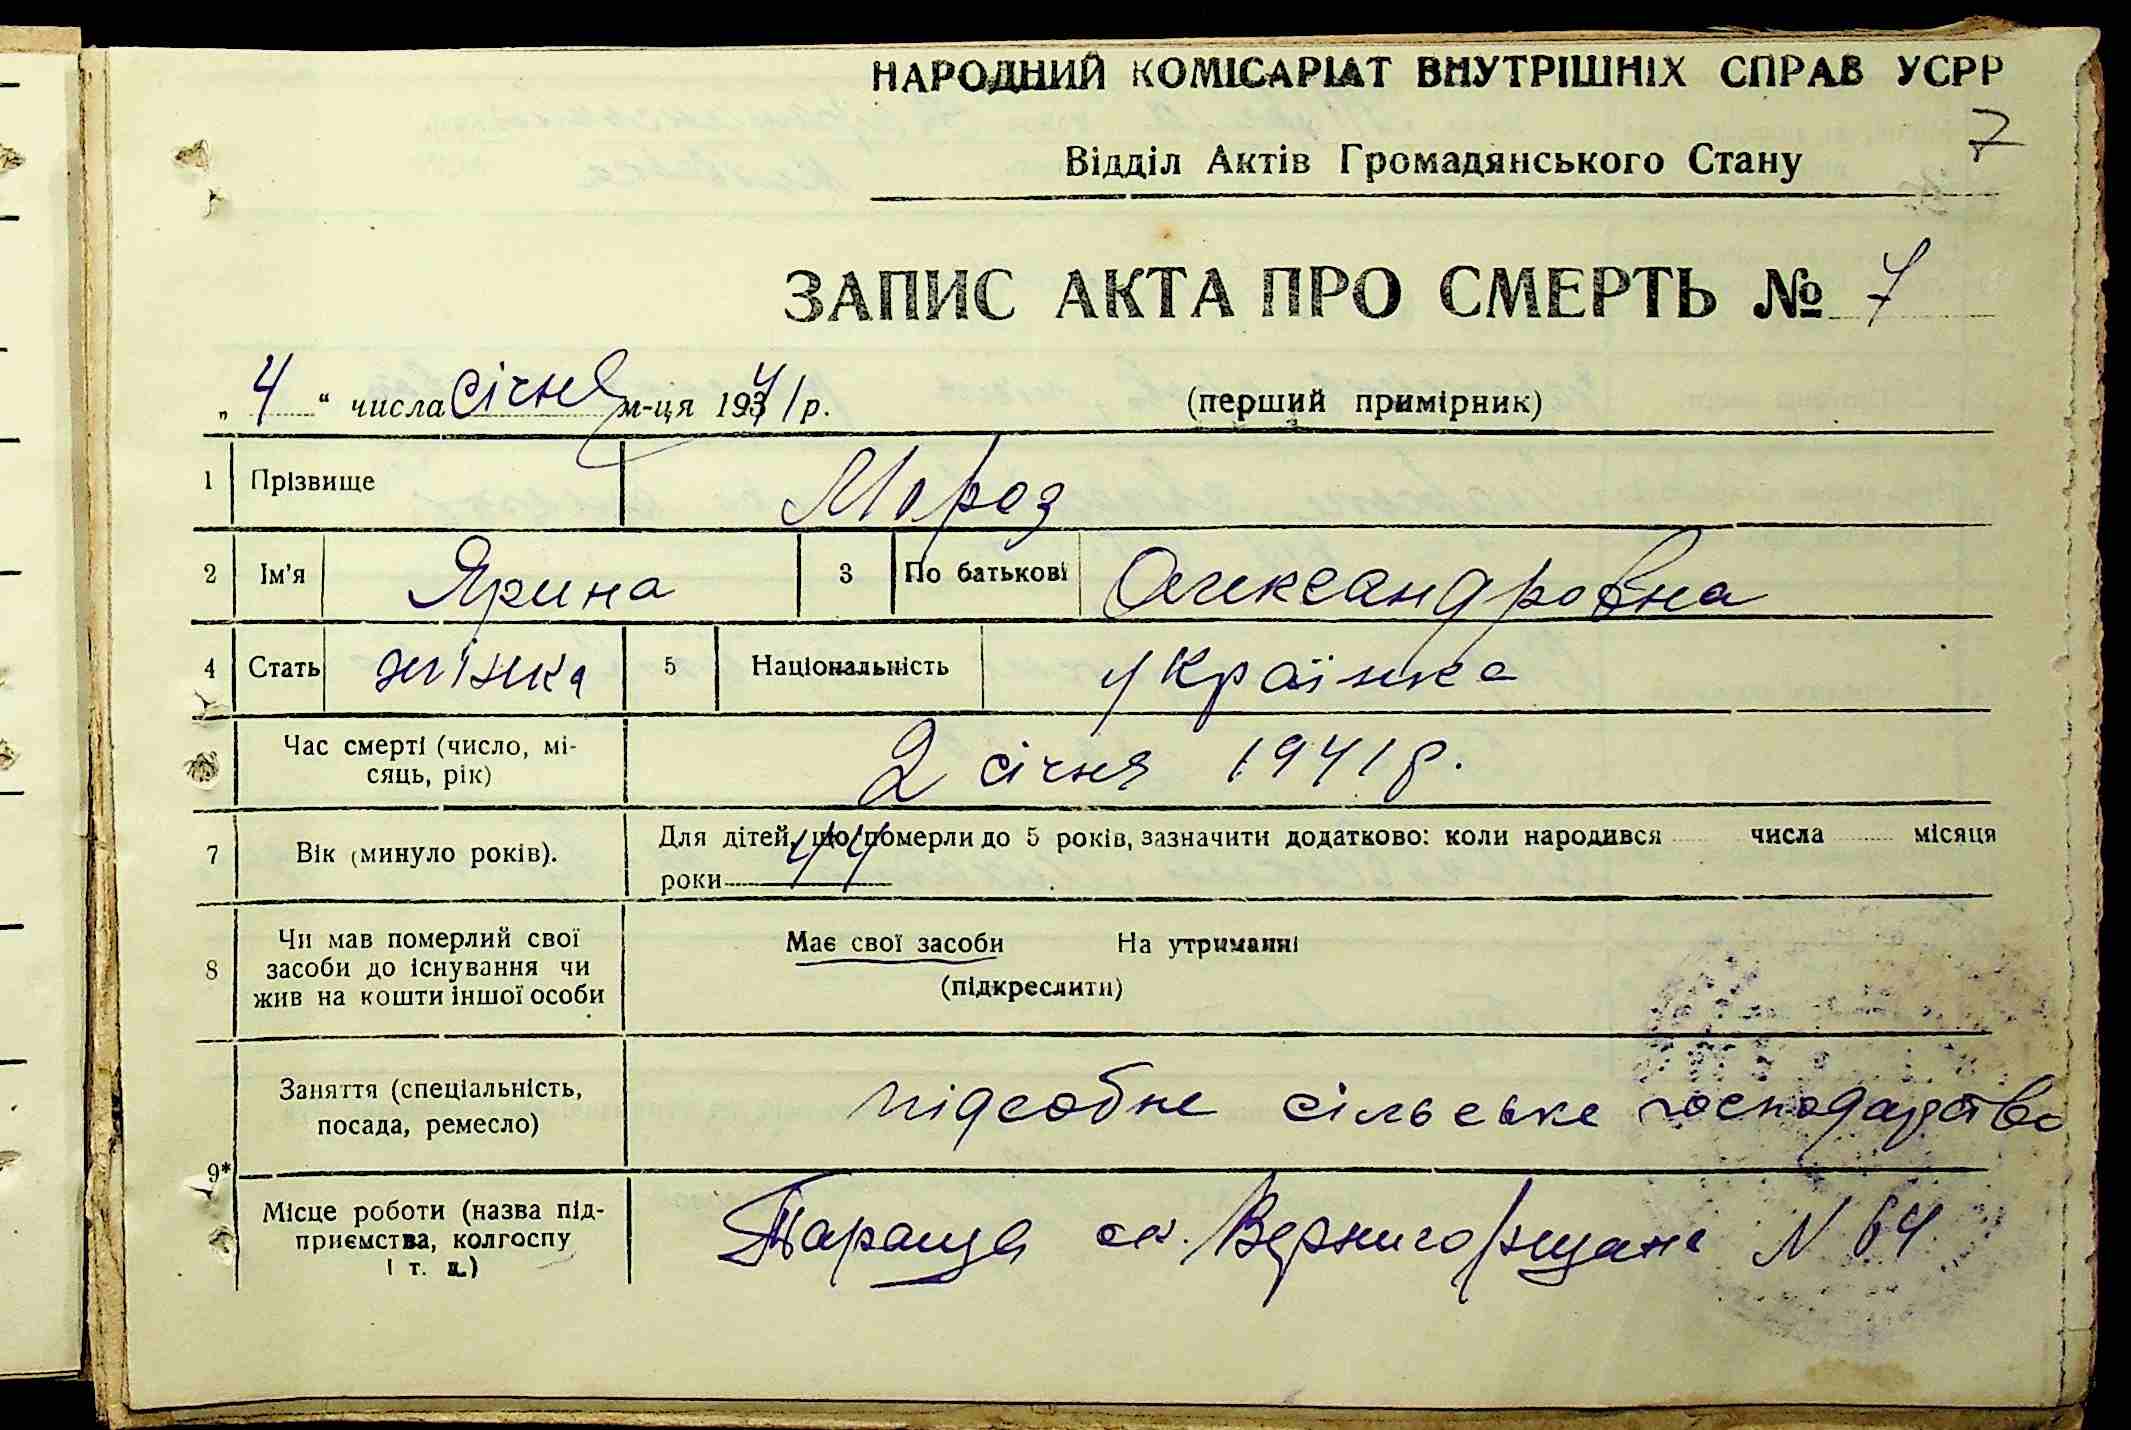 НАРОДНИЙ КОМІСАРІАТ ВНУТРІШНІХ СПРАВ УСРР
7
Відділ Актів Громадянського Стану
ЗАПИС АКТА ПРО СМЕРТЬ № 7
„ 4 “ числа січня м-ця 1941 р. (перший примірник)
1 Прізвище Мороз
2 Ім'я Ярина 3 По батькові Олександровна
4 Стать жінка 5 Національність українка
Час смерті (число, мі-
сяць, рік)
2 січня 1941 р.
7 Вік (минуло років). Для дітей, що померли до 5 років, зазначити додатково: коли народився числа місяця
роки 44
8 Чи мав померлий свої
засоби до існування чи
жив на кошти іншої особи
Має свої засоби На утриманні
(підкреслити)
9*
Заняття (спеціальність,
посада, ремесло)
підсобне сільське господарство
Місце роботи (назва під-
приємства, колгоспу
і т. д.)
Тараща N 64